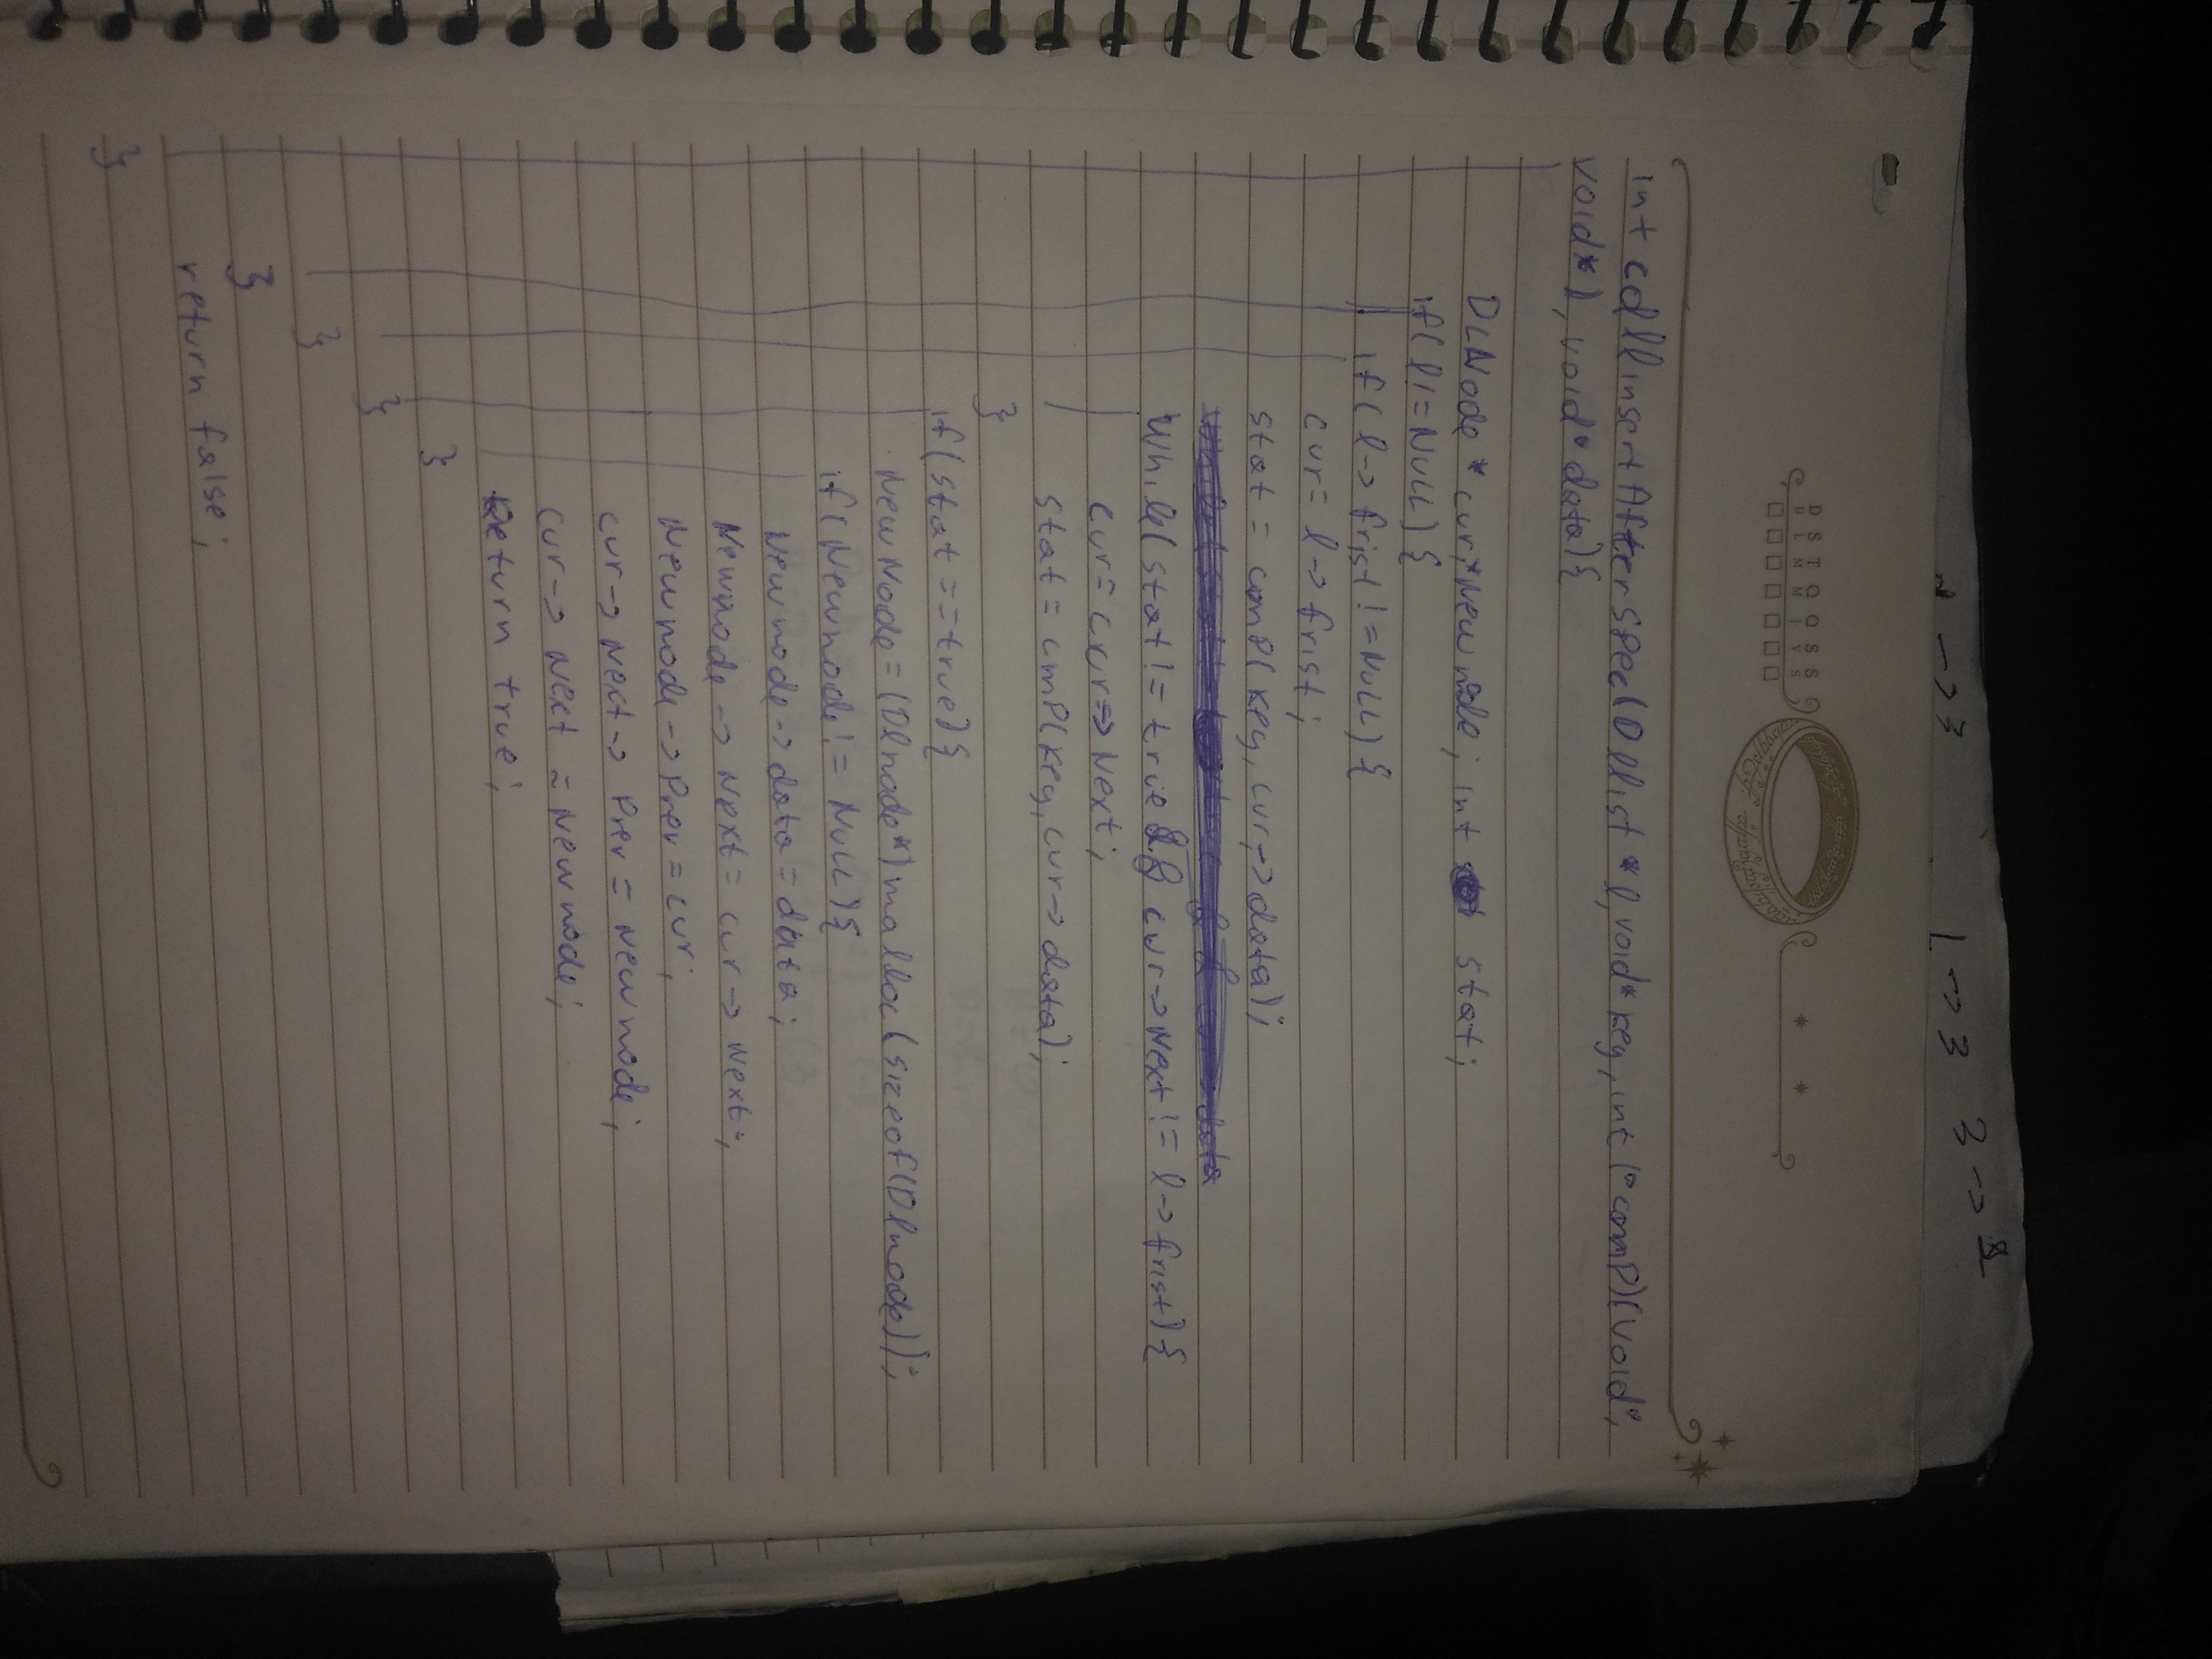 →3 1→3 3→
D S T Q Q S S
D L M M J V S
int cdllinsertAfterSpec(Dllist *l, void* key, int (*comp)(void*,
void*), void* data){
DLNode * cur,*Newnode; int stat;
if(l!=NULL){
if(l-> frist!=NULL){
cur= l-> frist;
stat = comP(key, cur->data);
While(stat!= true && cur->Next!= l-> frist){
cur= cur-> Next;
stat = cmP(key, cur-> data);
}
if(stat ==true){
NewNode=(Dlnode*)malloc(sizeof(Dlnode));
if(Newnode!= NULL){
Newnode-> data=data;
Newnode-> Next= cur-> Next;
Newnode->Prev = cur;
cur-> Next-> Prev = Newnode;
cur-> Next = Newnode;
Return true;
}
}
}
}
return false;
}